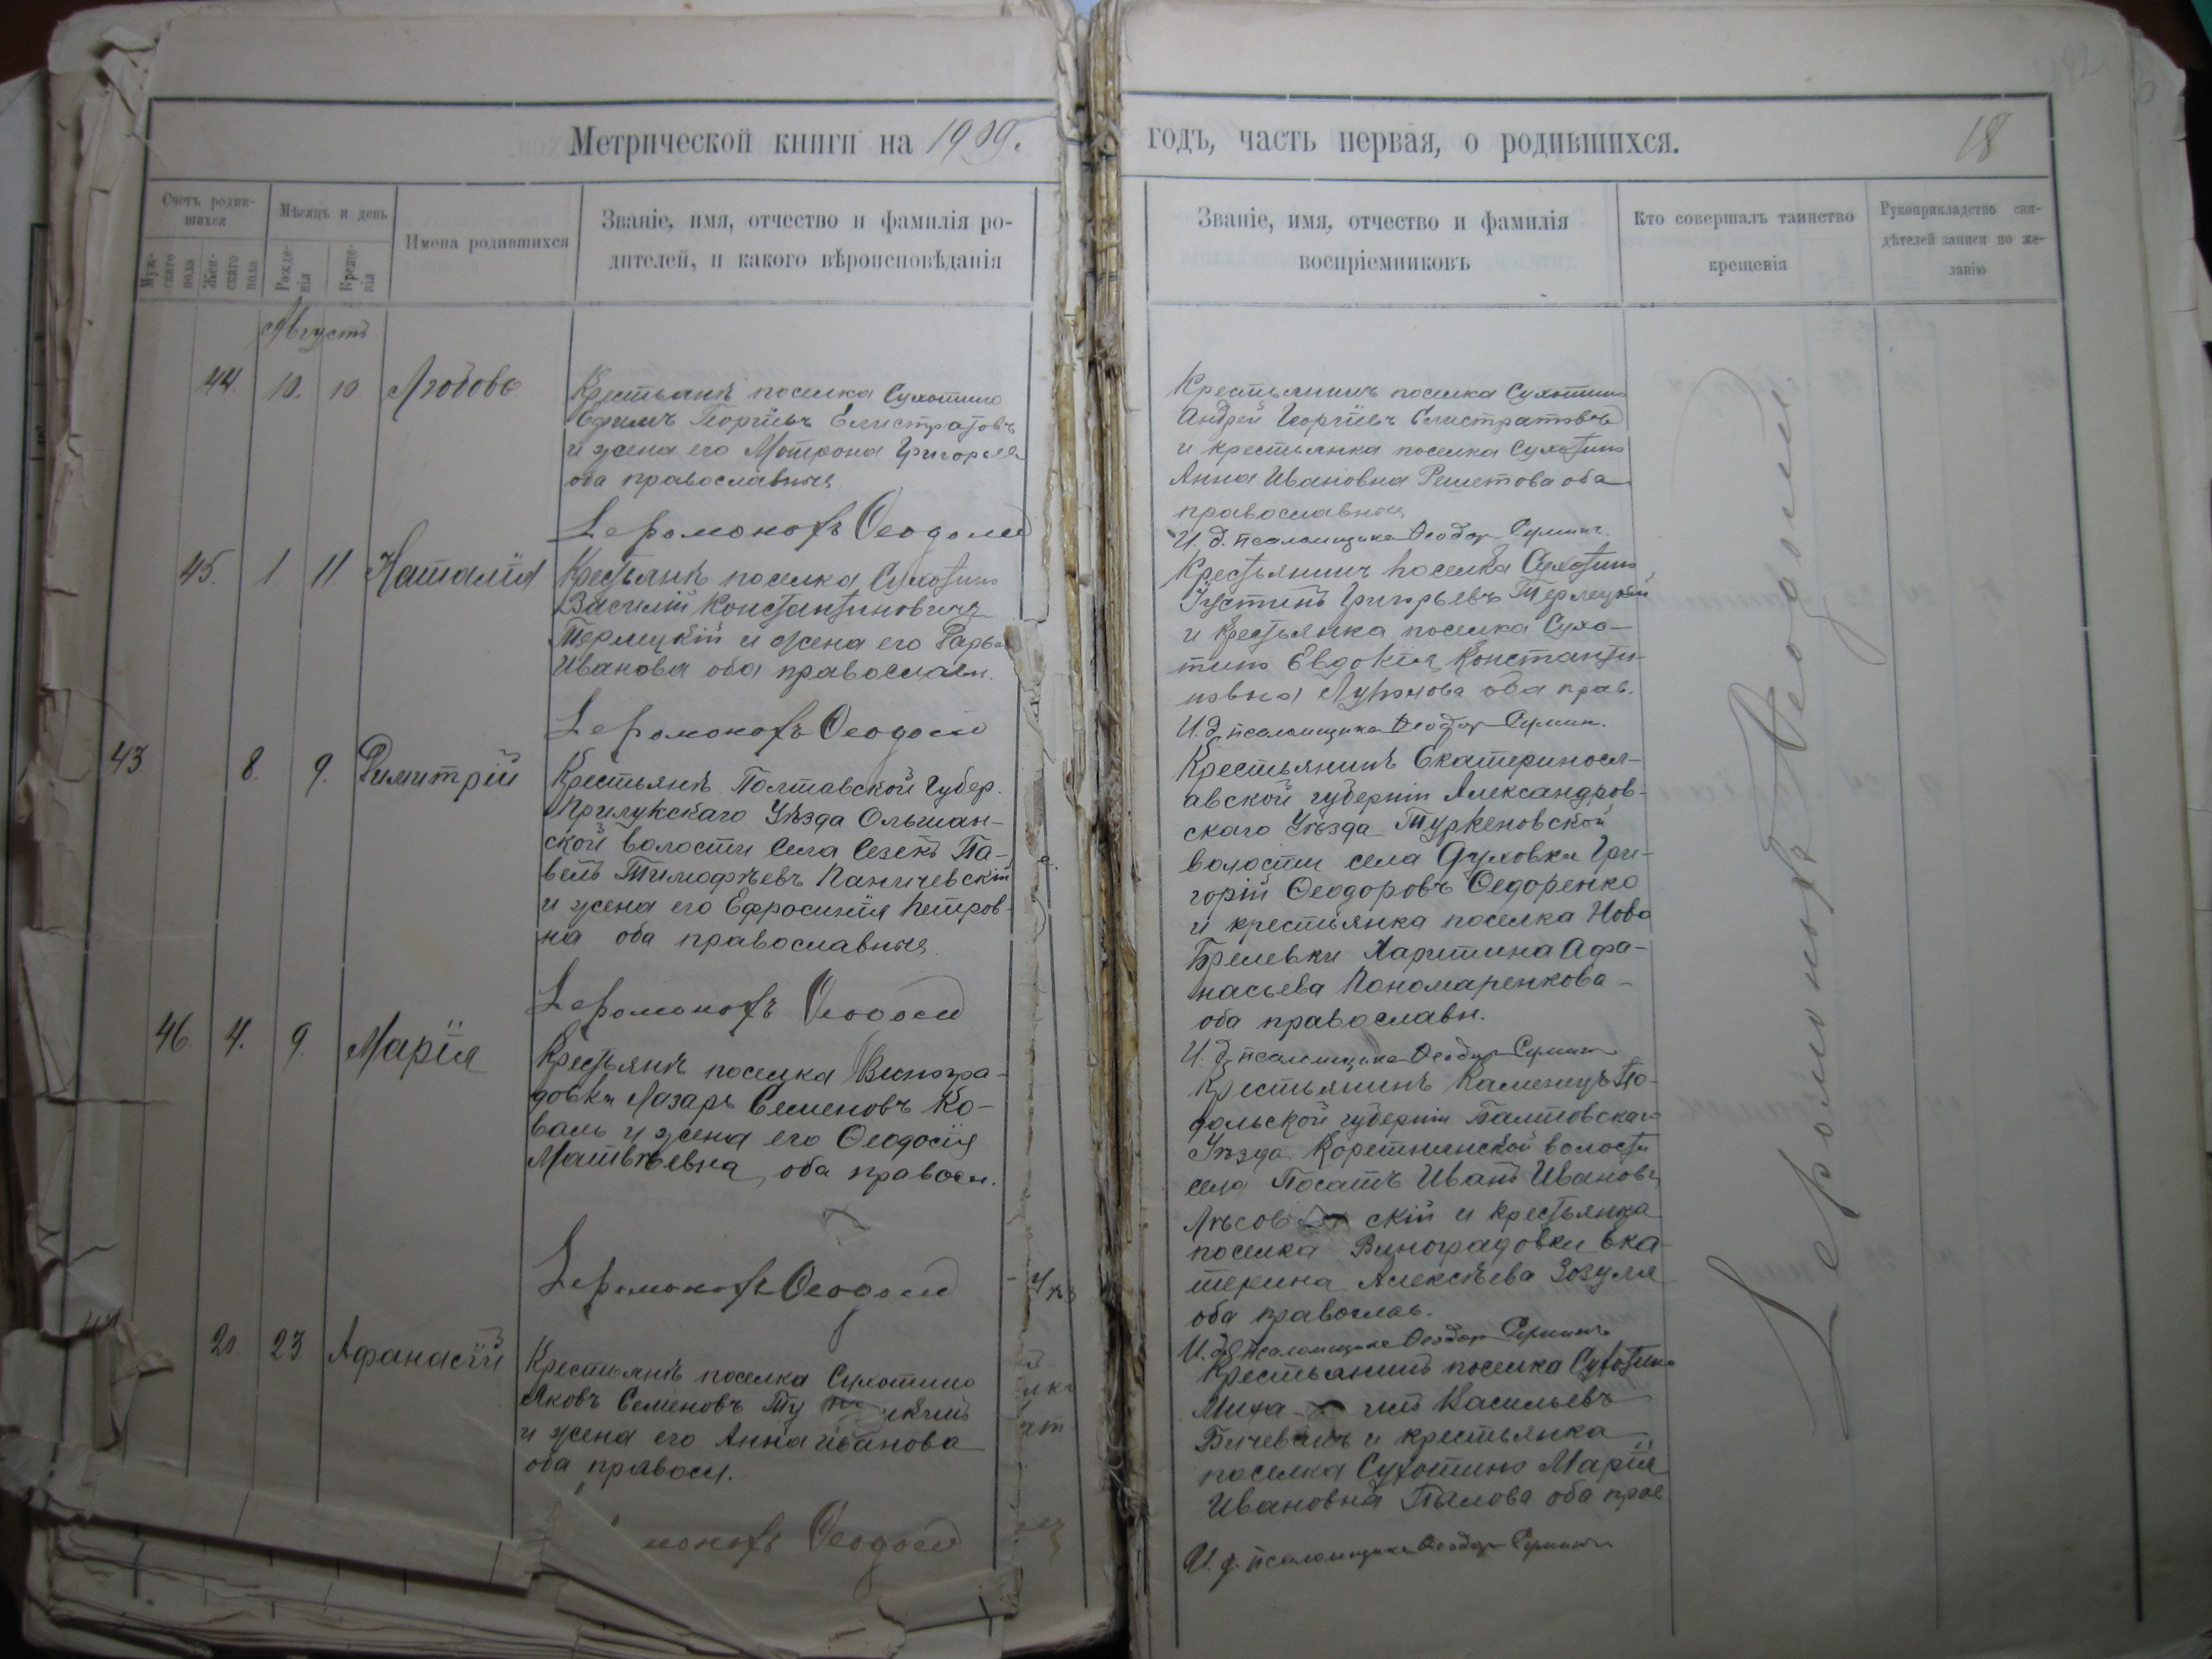 Метрической книги на 1909.
годъ, часть первая, о родившихся.
18
Счетъ родив-
шихся
Мѣсяцъ и день
Муж-
скаго
пола
Жен-
скаго
пола
Рожде-
нія
Креще-
нія
Имена родившихся
Званіе, имя, отчество и фамилія ро-
дителей, и какого вѣроисповѣданія
Званіе, имя, отчество и фамилія
воспріемниковъ
Кто совершалъ таинство
крещенія
Рукоприкладство сви-
дѣтелей записи по же-
ланію
Августъ
44. 10. 10 Любовь
Крестьянъ поселка Сухотино
Ефимъ Георгіевъ Елистратовъ
и жена его Матрона Григорьева
оба православные
Іеромонахъ Ѳеодосій
Крестьянинъ поселка Сухотино
Андрей Георгіевъ Елистратовъ
и крестьянка поселка Сухотино
Анна Ивановна Решетова оба
православные
И. д. псаломщика Ѳеодор
45. 1 11. Наталія
Крестьянъ поселка Сухотино
Василій Константиновичъ
Терлецкій и жена его Дарья
Иванова оба православн.
Іеромонахъ Ѳеодосій
Крестьянинъ поселка Сухотино
Іустинъ Григорьевъ Терлецкій
и крестьянка поселка Сухо-
тино Евдокія Константи-
новна оба прав.
И. д. псаломщика Ѳеодор
43 8. 9. Димитрій
Крестьянъ Полтавской Губер.
Прилукскаго Уѣзда Ольшан-
ской волости Села Сезекъ Па-
велъ Тимофѣевъ Паничевскій
и жена его Ефросинія Петров-
на оба православные
Іеромонахъ Ѳеодосій
Крестьянинъ Екатеринос-
авской губерніи Александров-
скаго Уѣзда Туркеновской
волости села Духовки Гри-
горій Ѳеодоровъ Ѳедоренко
и крестьянка поселка Ново
Брелевки Харитина Афа-
насьева Пономаренкова
оба православн.
И. д. псаломщика Ѳеодор
46. 4. 9. Марія
Крестьянъ поселка Виногра-
довки Лазарь Семеновъ Ко-
валь и жена его Ѳеодосія
Матвѣевна оба правосл.
Іеромонахъ Ѳеодосій
Крестьянинъ Каменецъ По-
дольской губерніи Балтовскаго
Уѣзда волости
села Посатъ Иванъ Ивановъ
Лѣсов скій и крестьянка
поселка Виноградовки Ека-
терина Алексѣева Зозуля
оба православ.
И. д. псаломщика Ѳеодор
20 23 Афанасій
Крестьянъ поселка Сухотино
Яковъ Семеновъ
и жена его Анна Иванова
оба правосл.
монахъ Ѳеодосій
Крестьянинъ поселка Сухотино
Миха илъ Васильевъ
Бичевъ и крестьянка
поселка Сухотино Марія
Ивановна Пылова оба прав
И. д. псаломщика Ѳеодор
Іеромонахъ Ѳеодосій